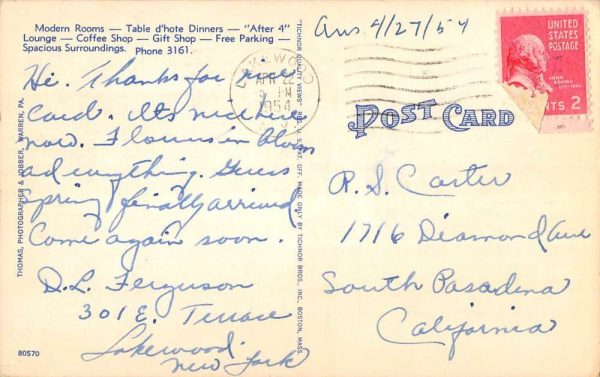 Modern Rooms — Table d'hote Dinners — "After 4"
Lounge — Coffee Shop — Gift Shop — Free Parking —
Spacious Surroundings. Phone 3161.
Ans. 4/27/54
LAKEWOOD
APR 22
5 PM
1954
N.Y.
UNITED
STATES
POSTAGE
JOHN
ADAMS
NTS 2
POST CARD
Hi. Thanks for nice
card. Its nice here
now. Flowers in bloom
and everything. Guess
Spring finally arrived.
Come again soon.
D.L. Ferguson
301 E. Terrace
Lakewood
New York
R. S. Carter
1716 Diamond Ave
South Pasadena
California
THOMAS, PHOTOGRAPHER & JOBBER, WARREN, PA.
"TICHNOR QUALITY VIEWS" REG. U. S. PAT. OFF. MADE ONLY BY TICHNOR BROS., INC., BOSTON, MASS.
80570